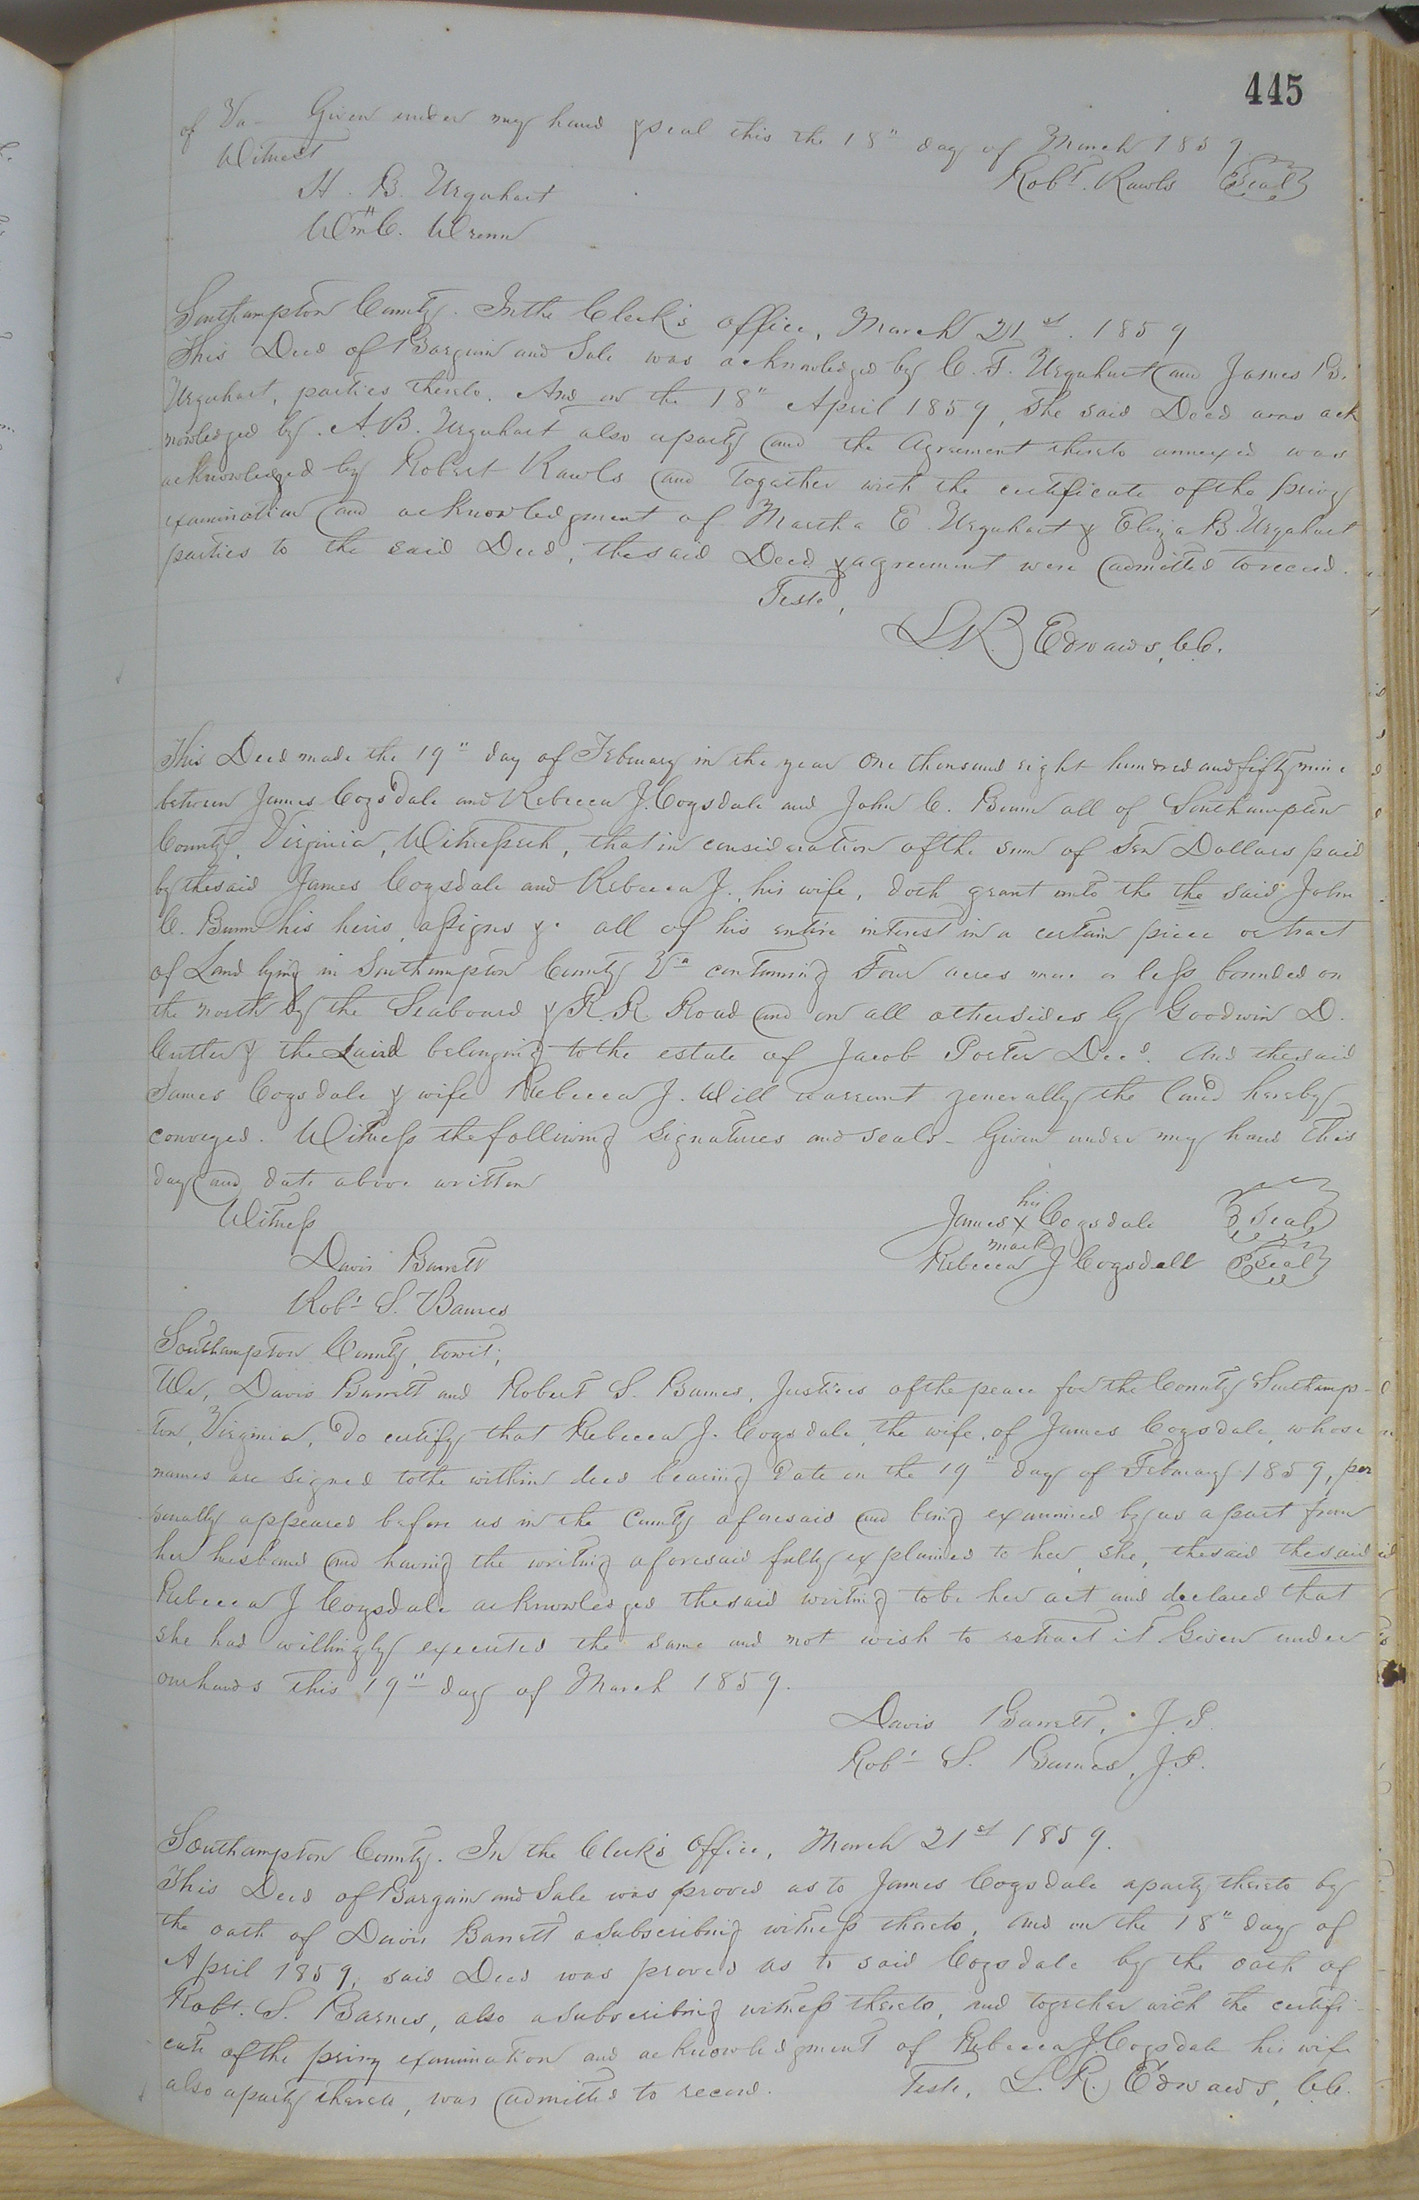 445
of Va - Given under my hand & seal this the 18" day of March 1859
Witness
Robt. Rawls Seal
A. B. Urquhart
Wm C. Wrenn
Southampton County. In the Clerk's office, March 21st. 1859
This Deed of Bargain and Sale was acknowledged by C. F. Urquhart and James B.
Urquhart, parties thereto. And on the 18" April 1859, the said Deed was ack
nowledged by A. B. Urquhart also a party and the agreement thereto annexed was
acknowledged by Robert Rawls and together with the certificate of the privy
examination and acknowledgment of Martha E. Urquhart & Eliza B. Urquhart
parties to the said Deed, the said Deed & agreement were admitted to record.
Teste,
L R Edwards, CC.
This Deed made the 19" day of February in the year One thousand eight hundred and fifty nine
between James Cogsdale and Rebecca J. Cogsdale and John C. Bunn all of Southampton
County, Virginia, Witnesseth, that in consideration of the sum of Ten Dollars paid
by the said James Cogsdale and Rebecca J. his wife, doth grant unto the the said John
C. Bunn his heirs, assigns &c all of his entire interest in a certain piece or tract
of Land lying in Southampton County Va containing Four acres more or less bounded on
the north by the Seaboard & R. R. Road and on all other sides by Goodwin D.
Cutler & the Land belonging to the estate of Jacob Porter Decd. And the said
James Cogsdale & wife Rebecca J. Will warrant generally the land hereby
conveyed. Witness the following signatures and seals - Given under my hand this
day and date above written
Witness
his
James X Cogsdale Seal
mark
Davis Barrett
Rebecca J Cogsdall Seal
Robt S. Barnes
Southampton County, towit;
We, Davis Barrett and Robert S. Barnes, Justices of the peace for the County Southamp-
ton, Virginia, do certify that Rebecca J. Cogsdale, the wife, of James Cogsdale, whose
names are signed to the within deed bearing date on the 19" day of February 1859, per
sonally appeared before us in the County aforesaid and being examined by us apart from
her husband and having the writing aforesaid fully explained to her, she, the said the said
Rebecca J Cogsdale acknowledged the said writing to be her act and declared that
she had willingly executed the same and not wish to retract it Given under
our hands this 19" day of March 1859.
Davis Barrett, J.P.
Robt S. Barnes, J.P.
Southampton County. In the Clerk's Office, March 21st 1859.
This Deed of Bargain and Sale was proved as to James Cogsdale a party thereto by
the oath of Davis Barrett a subscribing witness thereto, and on the 18" day of
April 1859, said Deed was proved as to said Cogsdale by the oath of
Robt. S. Barnes, also a subscribing witness thereto, and together with the certifi-
cate of the privy examination and acknowledgment of Rebecca J. Cogsdale his wife
also a party thereto, was admitted to record. Teste, L. R. Edwards, CC.